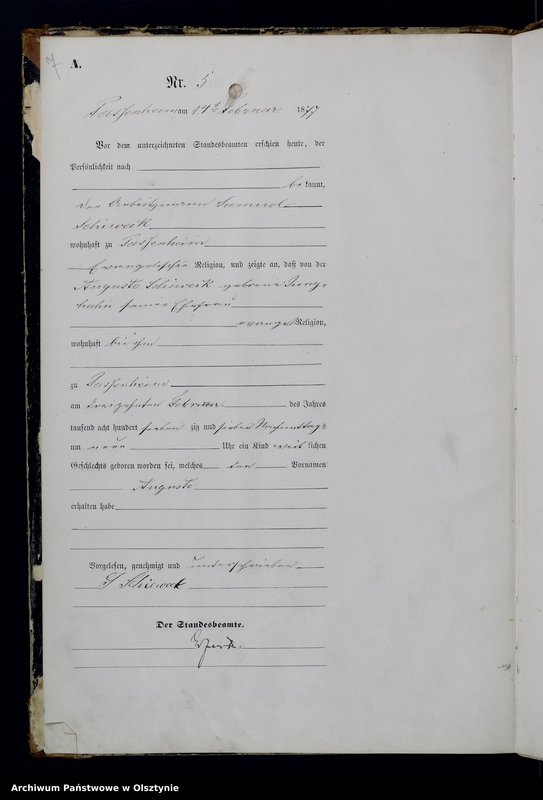 7
A.
Nr. 5
Passenheim am 14ten Februar 1877
Vor dem unterzeichneten Standesbeamten erschien heute, der
Persönlichkeit nach
be kannt,
der Arbeitsmann Samuel
Schiweck
wohnhaft zu Passenheim
Evangelischer Religion, und zeigte an, daß von der
Auguste Schiweck geborene
seiner Ehefrau
evangel Religion,
wohnhaft bei ihm
zu Passenheim
am dreizehnten Februar des Jahres
tausend acht hundert sieben zig und sieben Nachmittags
um neun Uhr ein Kind weib lichen
Geschlechts geboren worden sei, welches den Vornamen
Auguste
erhalten habe
Vorgelesen, genehmigt und unterschrieben
S Schiweck
Der Standesbeamte.
Archiwum Państwowe w Olsztynie